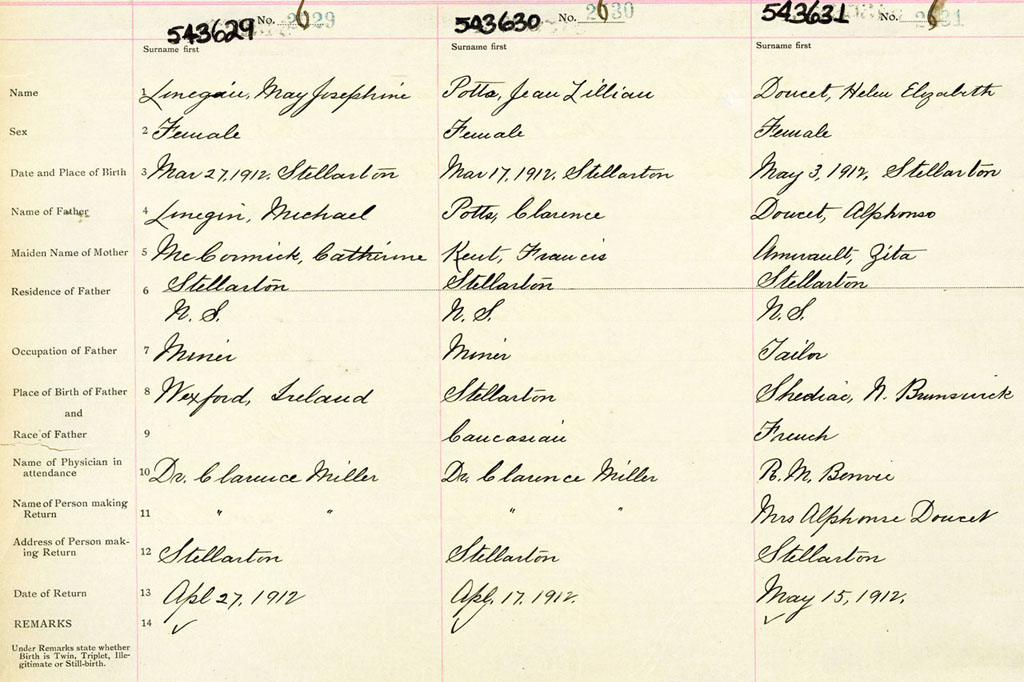 543629 No. 2029 543630 No. 2630 543631 No. 2631
Surname first Surname first Surname first
Name 1 Linegain, May Josephine Potts, Jean Lillian Doucet, Helen Elizabeth
Sex 2 Female Female Female
Date and Place of Birth 3 Mar 27, 1912. Stellarton Mar 17, 1912, Stellarton May 3, 1912, Stellarton
Name of Father 4 Linegin, Michael Potts, Clarence Doucet, Alphonso
Maiden Name of Mother 5 McCormick, Catherine Kent, Francis Amirault, Zita
Residence of Father 6 Stellarton Stellarton Stellarton
N. S. N. S. N. S.
Occupation of Father 7 Miner Miner Tailor
Place of Birth of Father 8 Wexford, Ireland Stellarton Shediac, N. Brunswick
and
Race of Father 9 Caucasian French
Name of Physician in
attendance 10 Dr. Clarence Miller Dr. Clarence Miller R. M. Benvie
Name of Person making
Return 11 " " " " Mrs Alphonse Doucet
Address of Person mak-
ing Return 12 Stellarton Stellarton Stellarton
Date of Return 13 Apl 27, 1912 Apl, 17, 1912. May 15, 1912.
REMARKS 14 ✓ ✓ ✓
Under Remarks state whether
Birth is Twin, Triplet, Ille-
gitimate or Still-birth.